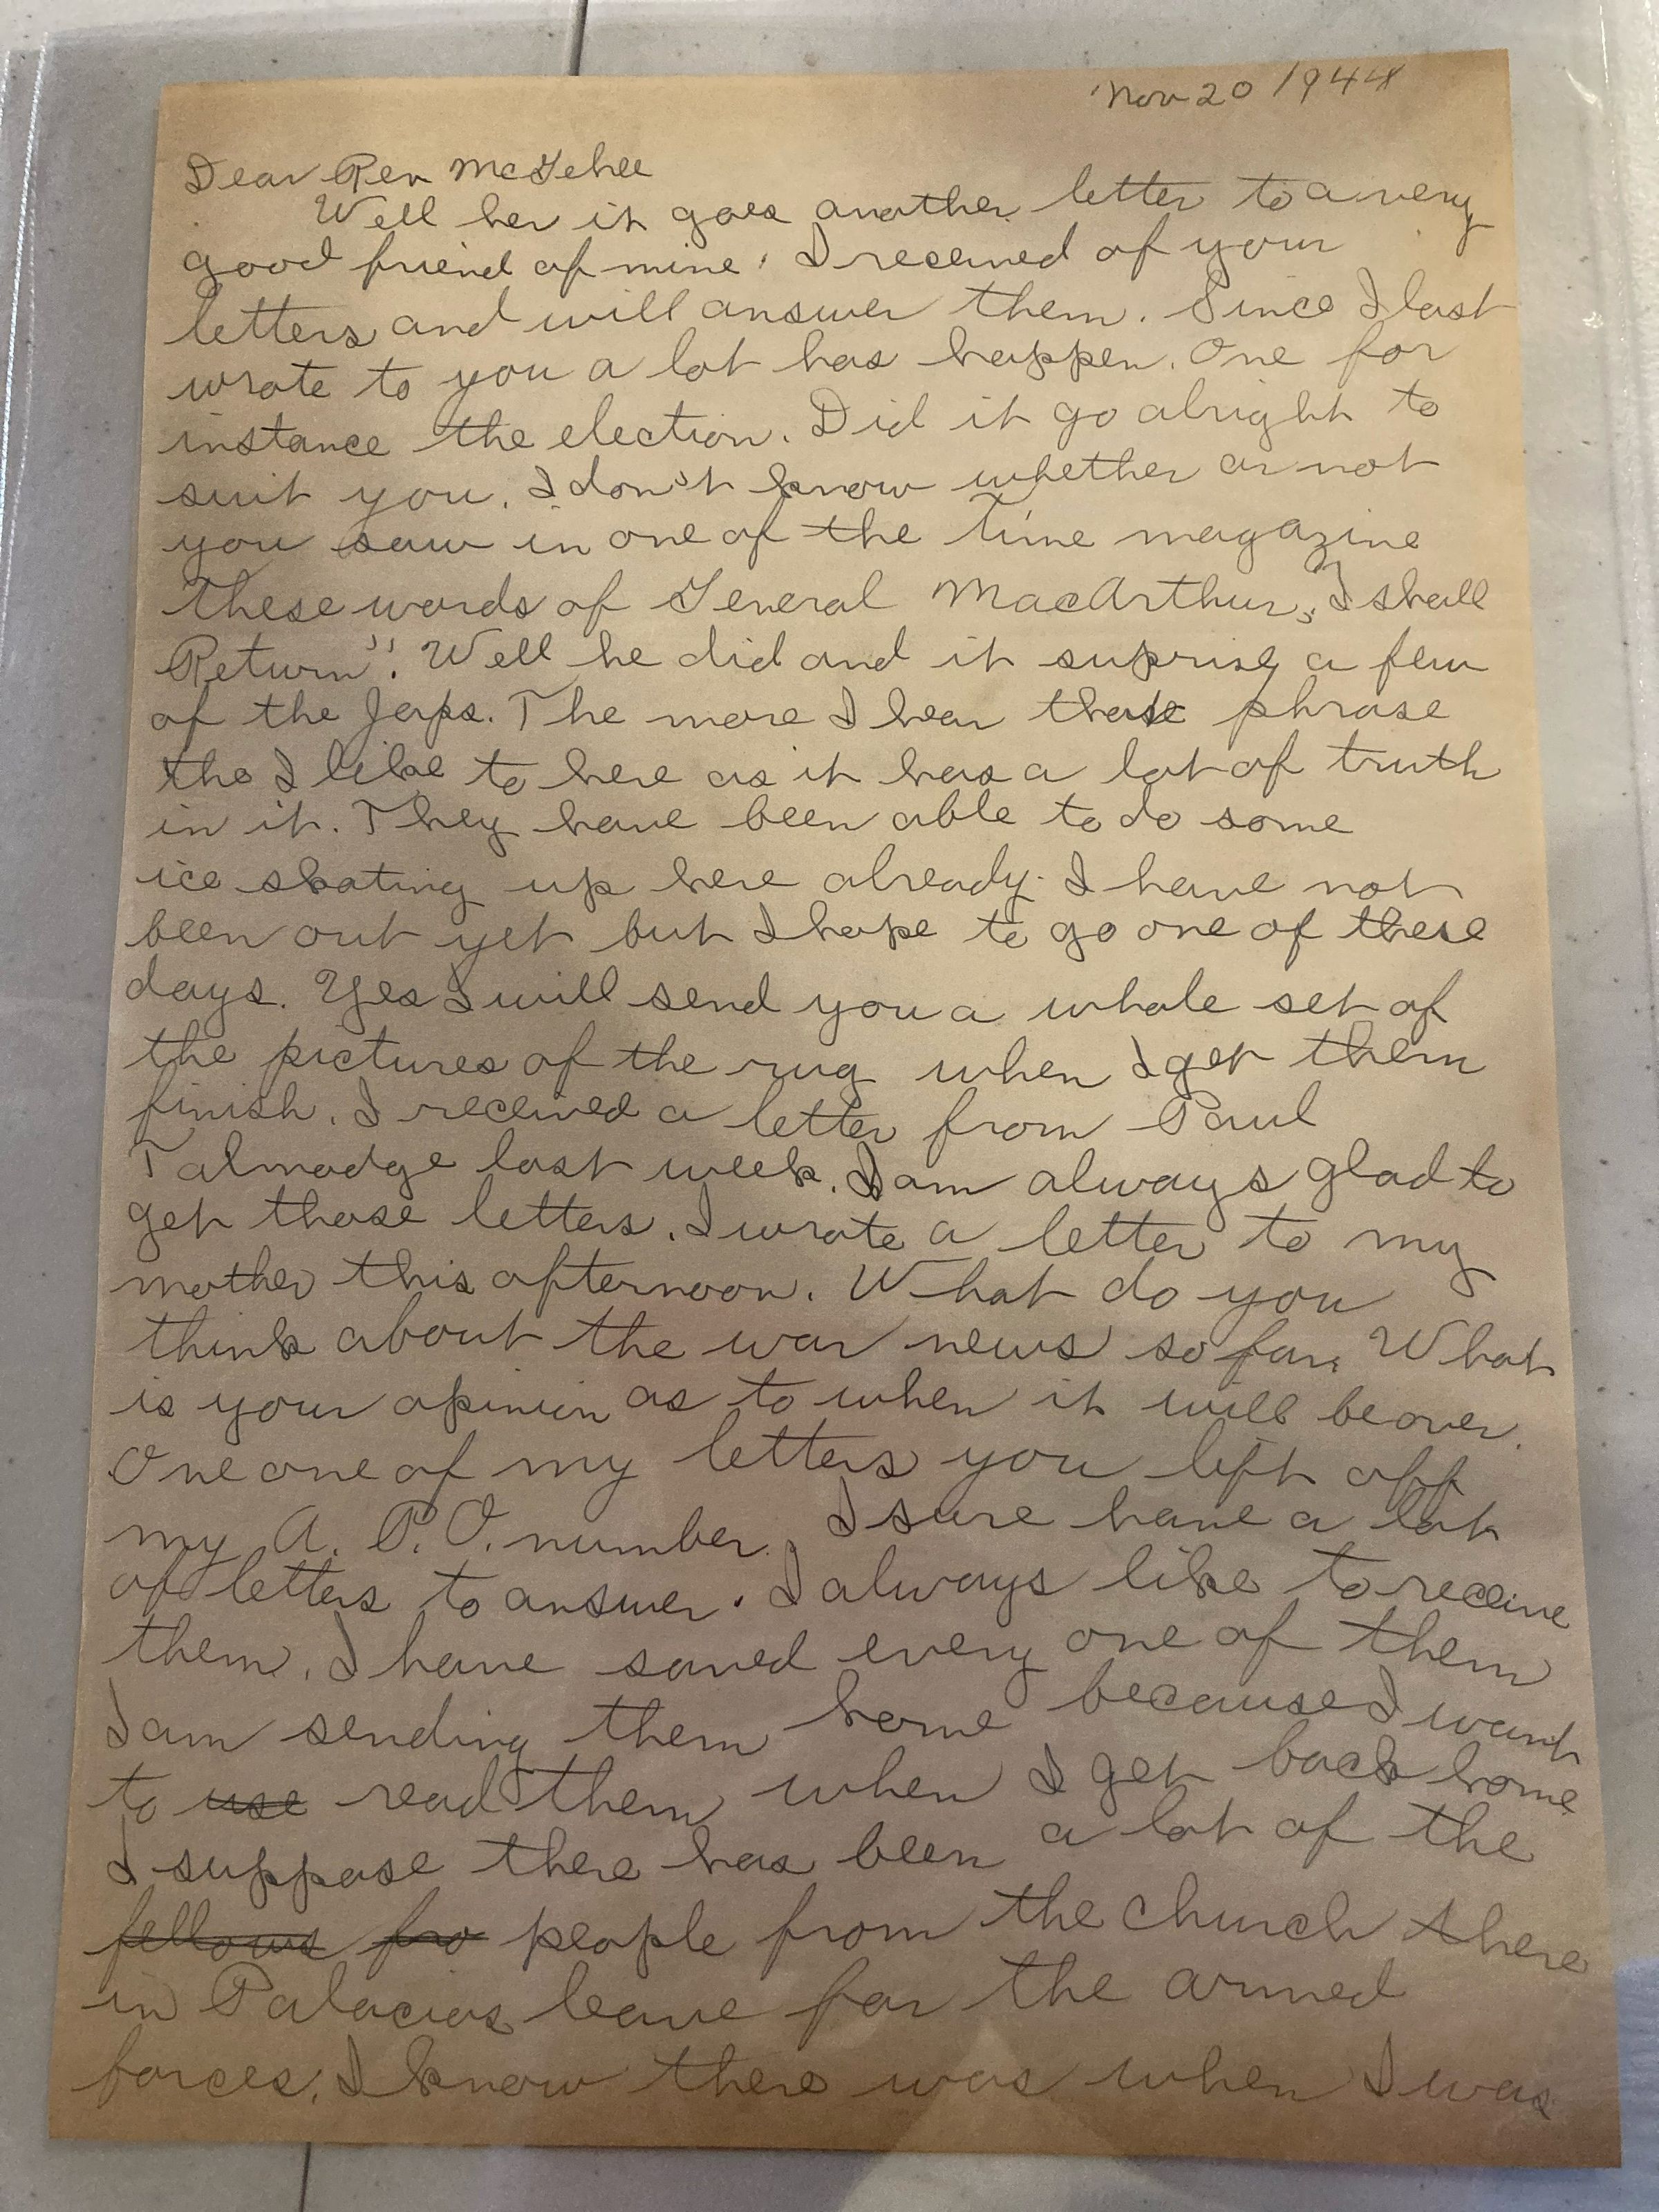 Nov 20 1944
Dear Rev McGehee
Well her it goes another letter to a very
good friend of mine. I received of your
letters and will answer them. Since I last
wrote to you a lot has happen. One for
instance the election. Did it go alright to
suit you. I don't know whether or not
you saw in one of the Time magazine
These words of General MacArthur, "I shall
Return". Well he did and it suprise a few
of the Japs. The more I hear that phrase
the I like to here as it has a lot of truth
in it. They have been able to do some
ice skating up here already. I have not
been out yet but I hope to go one of these
days. Yes I will send you a whole set of
the pictures of the rug when I get them
finish. I received a letter from Paul
Talmadge last week. I am always glad to
get those letters. I wrote a letter to my
mother this afternoon. What do you
think about the war news so far. What
is your opinion as to when it will be over.
One one of my letters you left off
my A.P.O. number. I sure have a lot
of letters to answer. I always like to receive
them. I have saved every one of them
I am sending them home because I want
to use read them when I get back home
I suppose there has been a lot of the
fellows fro people from the church there
in Palacios leave for the armed
forces. I know there was when I was